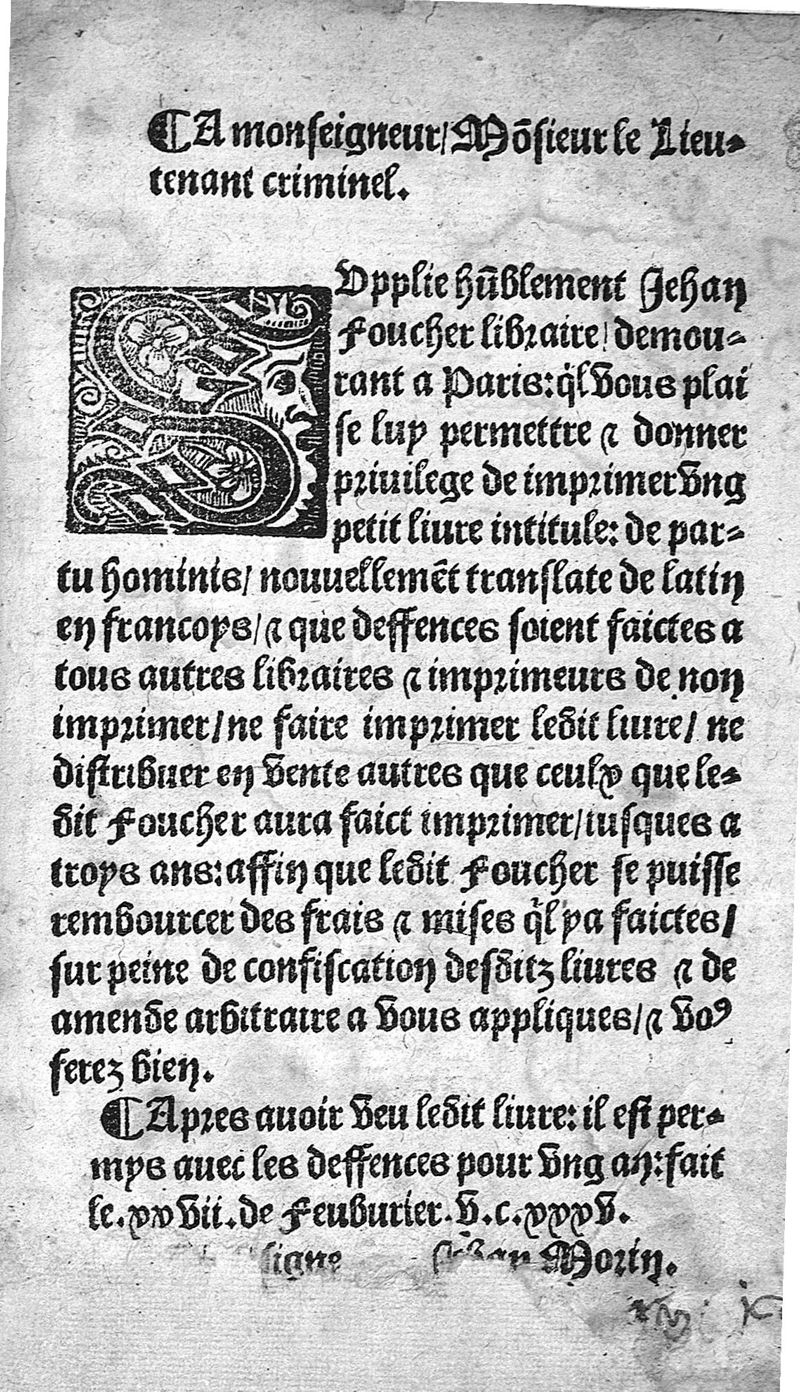 ¶A monseigneur/Mōsieur le Lieu-
tenant criminel.
SVpplie hūblement Jehan
Foucher libraire/demou-
rant a Paris:q̄l vous plai
se luy permettre ⁊ donner
priuilege de imprimer vng
petit liure intitule: de par-
tu hominis/ nouuellemēt translate de latin
en francoys/⁊ que deffences soient faictes a
tous autres libraires ⁊ imprimeurs de non
imprimer/ne faire imprimer ledit liure/ ne
distribuer en vente autres que ceulx que le-
dit Foucher aura faict imprimer/iusques a
troys ans:affin que ledit Foucher se puisse
rembourcer des frais ⁊ mises q̄l ya faictes/
sur peine de confiscation desditz liures ⁊ de
amende arbitraire a vous appliques/⁊ voꝰ
ferez bien.
¶Apres auoir veu ledit liure: il est per-
mys auec les deffences pour vng an:fait
le.xxvii.de Feuburier.v.c.xxxv.
signe Jehan Morin.